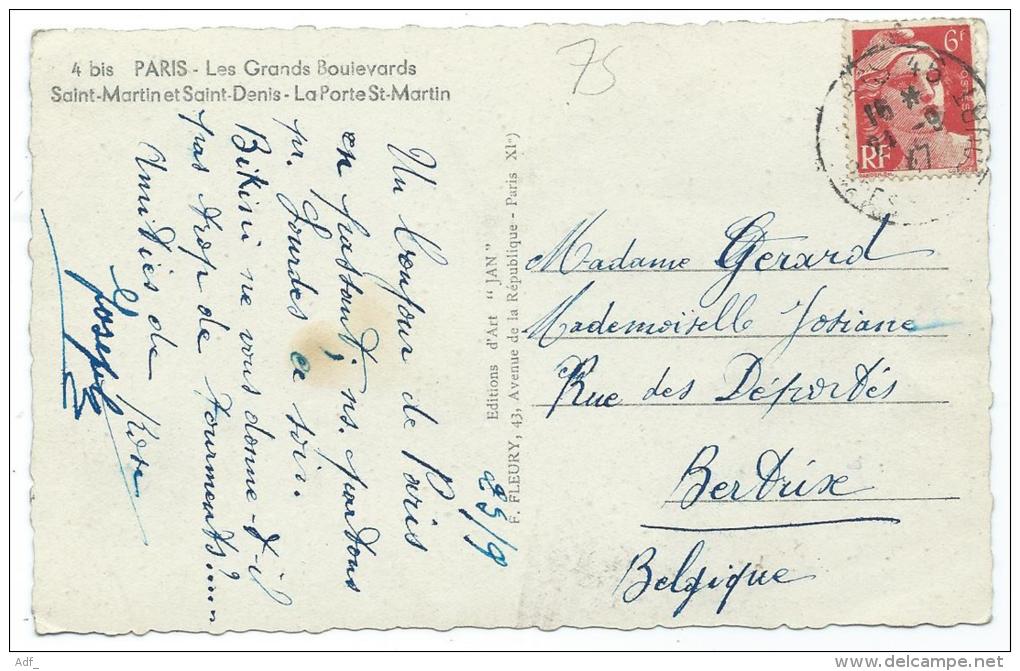 4 bis PARIS - Les Grands Boulevards
Saint-Martin et Saint-Denis - La Porte St-Martin
75
6f
RF
16 45
-9
25/9
Un bonjour de Paris
en passant, ns. partons
pr. Lourdes ce soir.
Bikini ne vous donne-t-il
pas trop de tourments?....
Amitiés de
Joseph
Editions d'Art "JAN"
F. FLEURY, 43, Avenue de la République - Paris XIe)
Madame Gérard
Mademoiselle Josiane
Rue des Déportés
Bertrix
Belgique
Adf_
www.delcampe.net